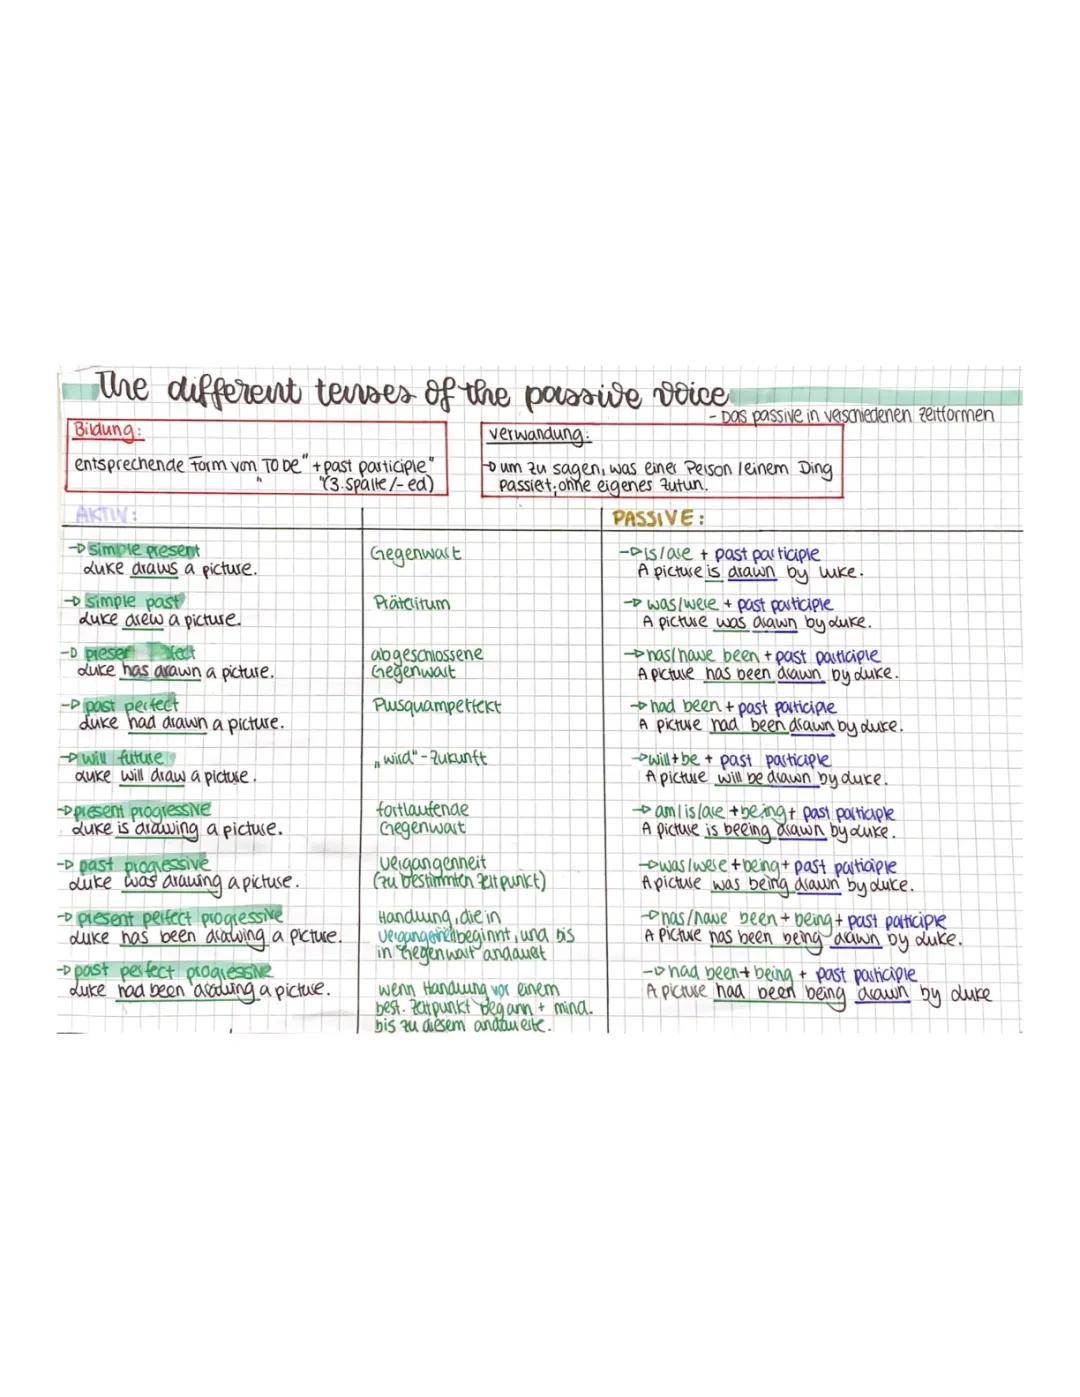 The different tenses of the passive voice
- Das passive in verschiedenen Zeitformen
Bildung:
entsprechende Form von "TO be" + "past participle"
(3. Spalte/-ed)
Verwandung:
→ um zu sagen, was einer Person / einem Ding
passiert, ohne eigenes Zutun.
AKTIV:
PASSIVE:
→ simple present
Luke draws a picture.
Gegenwart
→ is/are + past participle
A picture is drawn by Luke.
→ simple past
Luke drew a picture.
Präteritum
→ was/were + past participle
A picture was drawn by Luke.
→ present perfect
Luke has drawn a picture.
abgeschlossene
Gegenwart
→ has/have been + past participle
A picture has been drawn by Luke.
→ past perfect
Luke had drawn a picture.
Pusquamperfekt
→ had been + past participle
A picture had been drawn by Luke.
→ will future
Luke will draw a picture.
„wird"-Zukunft
→ will + be + past participle
A picture will be drawn by Luke.
→ present progressive
Luke is drawing a picture.
fortlaufende
Gegenwart
→ am/is/are + being + past participle
A picture is beeing drawn by Luke.
→ past progressive
Luke was drawing a picture.
Vergangenheit
(zu bestimmten Zeitpunkt)
→ was/were + being + past participle
A picture was being drawn by Luke.
→ present perfect progressive
Luke has been drawing a picture.
Handlung, die in
Vergangenheit beginnt, und bis
in Gegenwart andauert
→ has/have been + being + past participle
A picture has been being drawn by Luke.
→ past perfect progressive
Luke had been drawing a picture.
wenn Handlung vor einem
best. Zeitpunkt begann + mind.
bis zu diesem andauerte.
→ had been + being + past participle
A picture had been being drawn by Luke